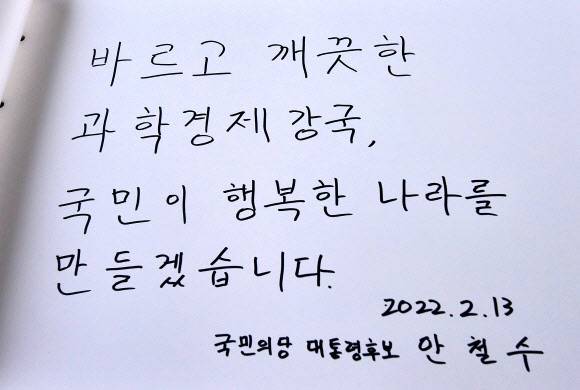 바르고 깨끗한
과학경제강국,
국민이 행복한 나라를
만들겠습니다.
2022.2.13
국민의당 대통령후보 안철수